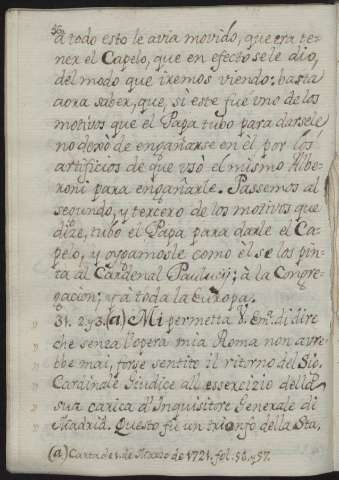 à todo esto le avia movido, que era te-
ner el Capelo, que en efecto se le dio,
del modo que iremos viendo: basta
aora saber, que, si este fué uno de los
motivos que el Papa tubo para darsele
no dexò de engañarse en èl por los
artificios de que usò el mismo Albe-
roni para engañarle. Passemos al
segundo, y tercero de los motivos que
dize, tubo el Papa para darle el Ca-
pelo, y oygamosle como èl se los pin-
ta al Cardenal Paulucij; à la Congre-
gacion; y à toda la Europa.
31. 2 y 3. (a) Mi permetta V. Em.ª di dire
che senza l'opera mia Roma non avre-
bbe mai, forse sentito il ritorno del Sig.
Cardinale Giudice all essercizio della
sua carica d'Inquisitore Generale di
Madrid. Questo fu un trionfo della Sta.
(a) Carta de 1. de Marzo de 1721. fol. 56. y 57.